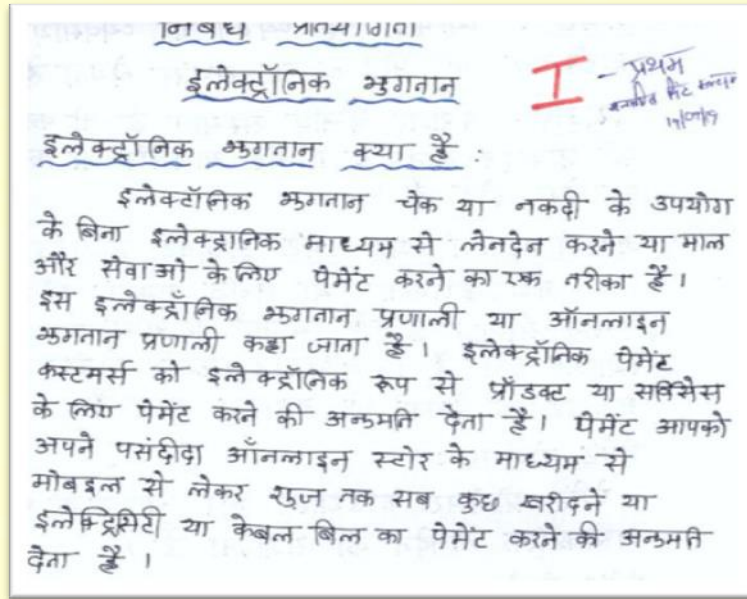 निबंध प्रतियोगिता
इलेक्ट्रॉनिक भुगतान
I - प्रथम
इलेक्ट्रॉनिक भुगतान क्या है :
इलेक्टॉनिक भुगतान चेक या नकदी के उपयोग
के बिना इलेक्ट्रानिक माध्यम से लेनदेन करने या माल
और सेवाओ के लिए पेमेंट करने का एक तरीका है।
इस इलेक्ट्रॉनिक भुगतान प्रणाली या ऑनलाइन
भुगतान प्रणाली कहा जाता है। इलेक्ट्रॉनिक पेमेंट
कस्टमर्स को इलेक्ट्रॉनिक रूप से प्रॉडक्ट या सर्विसेस
के लिए पेमेंट करने की अनुमति देता है। पेमेंट आपको
अपने पसंदीदा ऑनलाइन स्टोर के माध्यम से
मोबइल से लेकर शुज तक सब कुछ खरीदने या
इलेक्ट्रिसिटी या केबल बिल का पेमेंट करने की अनुमति
देता है।